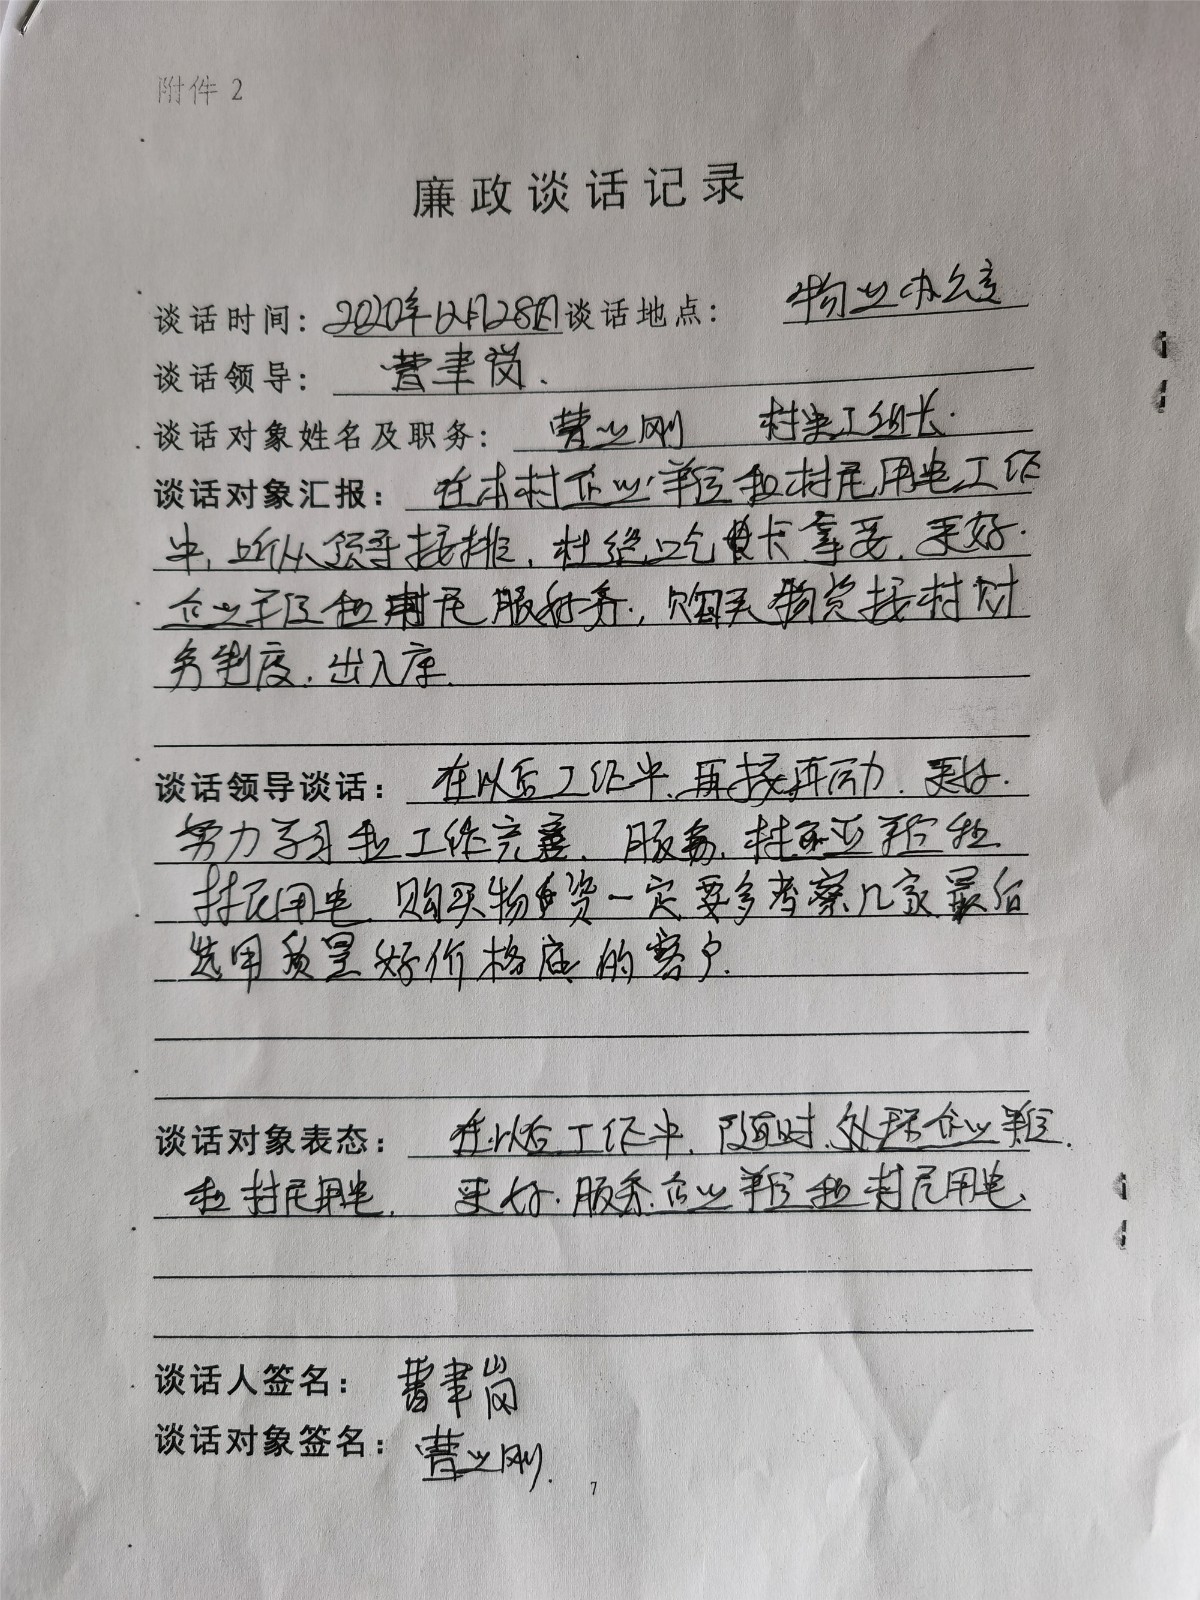 附件 2
廉政谈话记录
谈话时间：2020年12月28日 谈话地点：物业办公室
谈话领导：曹聿岗.
谈话对象姓名及职务：曹业刚 村电工组长.
谈话对象汇报：在本村企业单位和村民用电工作
中,听从领导按排,杜绝吃卡拿要,更好.
企业单位和村民服务,购买物资按村财
务制度.出入库.
谈话领导谈话：在以后工作中,再接再历,更好.
努力学习和工作完善,服务,村企业单位和
村民用电,购买物资一定要多考察几家最后
选用质量好价格底的客户.
谈话对象表态：在以后工作中,随时,处理企业单位.
和村民用电,更好.服务企业单位和村民用电.
谈话人签名：曹聿岗
谈话对象签名：曹业刚.
7